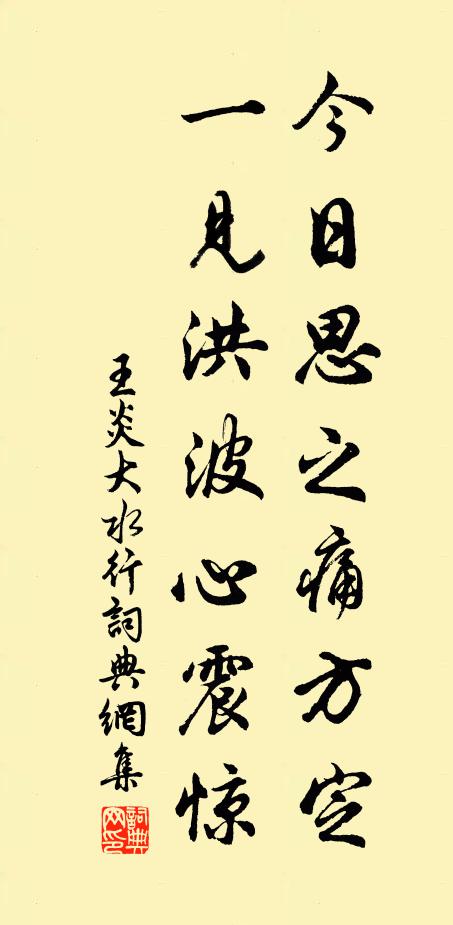 今日思之痛方定
一見洪波心震惊
王炎大水行詞典網集
詞典网印